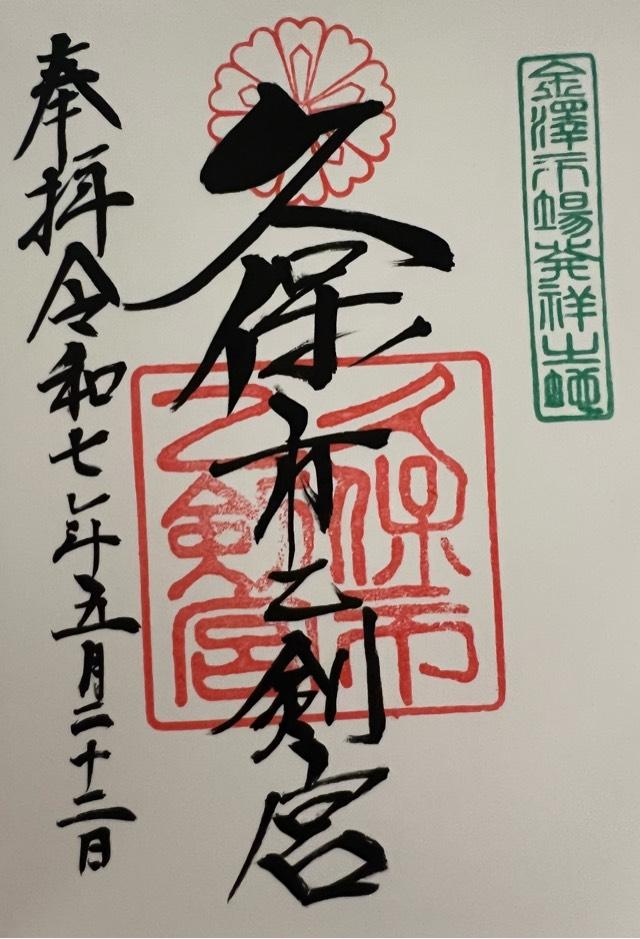 金澤市場発祥之地
久保市乙剣宮
久保市
乙剣宮
奉拝令和七年五月二十二日